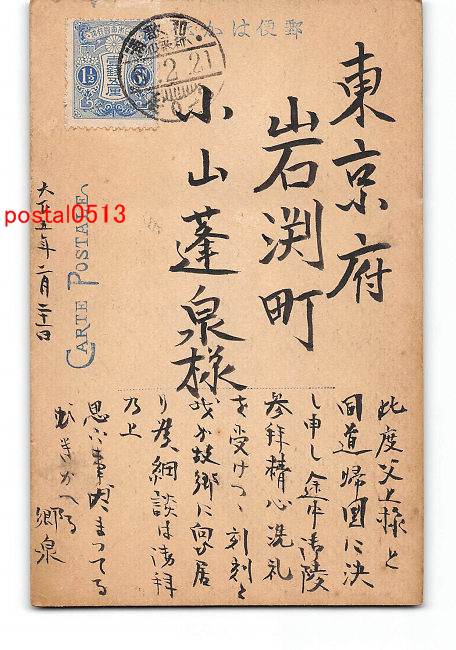 郵便はかき
東京府
岩渕町
小山蓬泉様
大正五年二月二十一日
CARTE POSTALE
此度父上様と
同道帰国に決
し申し途中御陵
参拝精心洗礼
を受けつゝ刻刻と
我が故郷に向ひ居
り候細談は御拝
乃上
郷泉
postal0513
1½
2.21